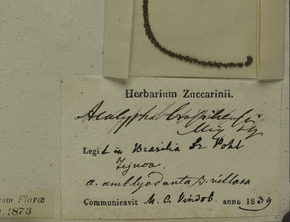 Herbarium Zuccarinii.
Acalypha brasiliensis
Müll. Arg.
Legit in Brasilia Dr Pohl
α. amblyodonta β. villosa
Communicavit M. C. Vindob. anno 1839
1873